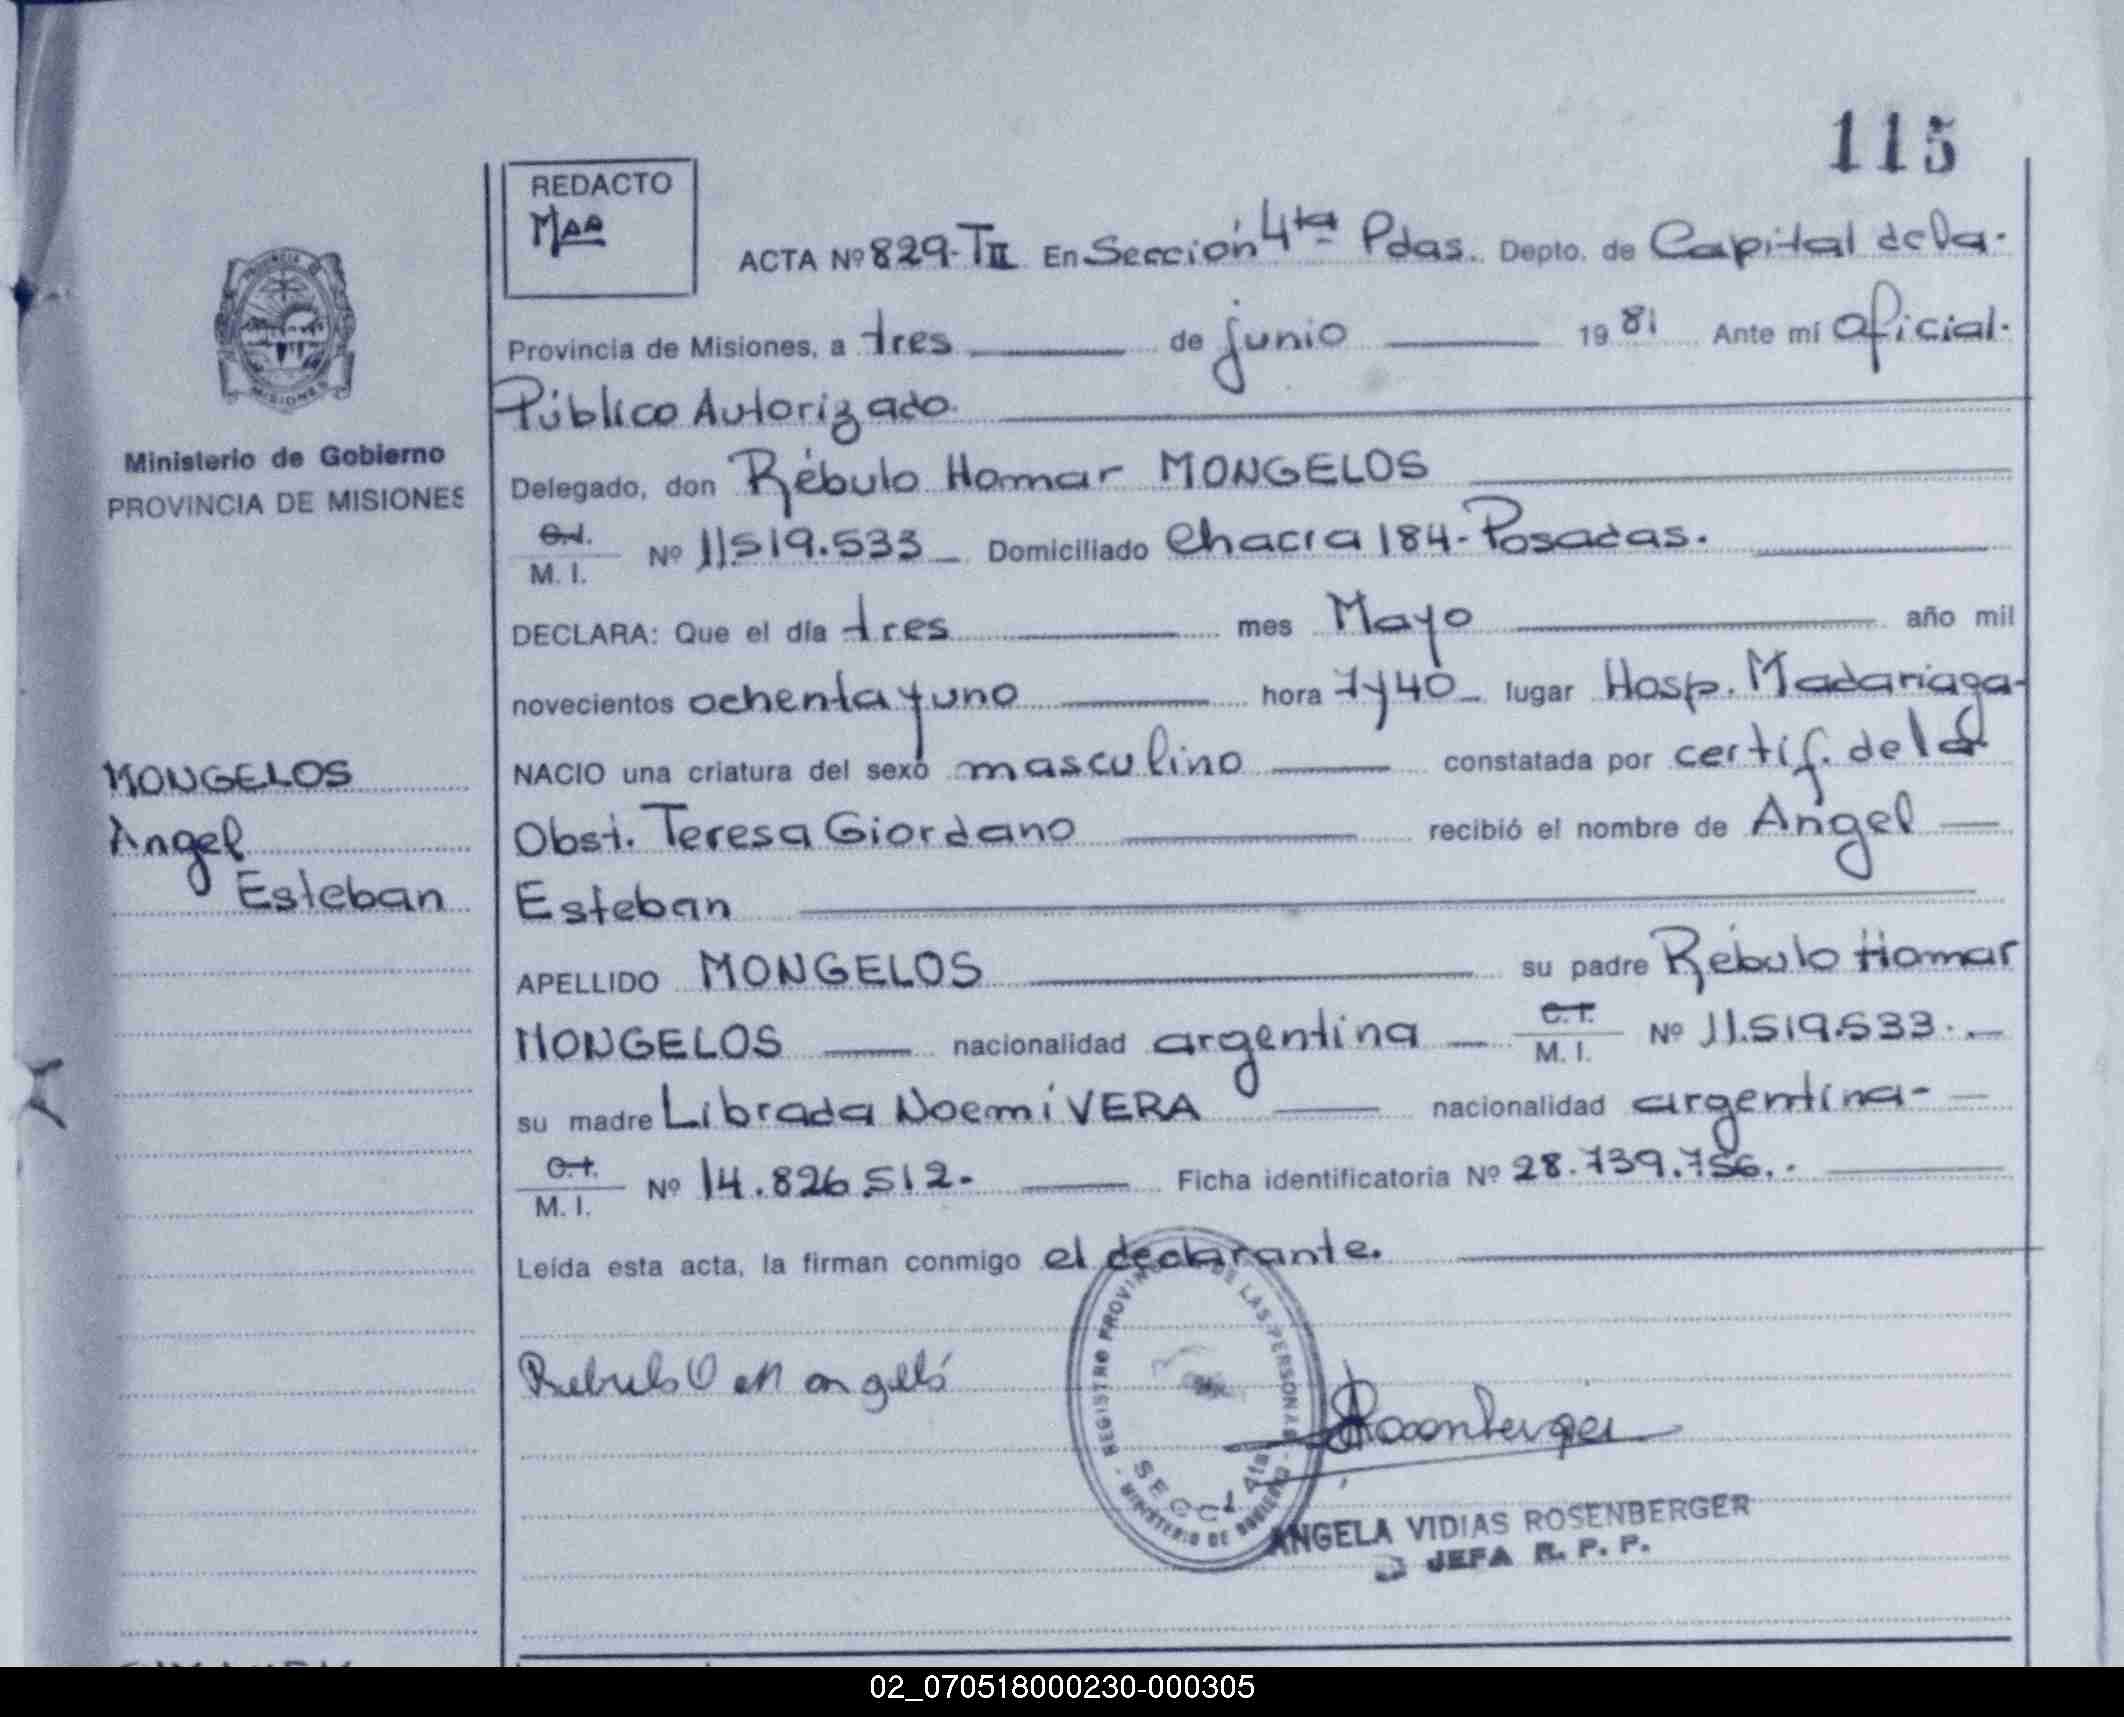 115
REDACTO
Maa
ACTA Nº 829-TII En Sección 4ta Pdas. Depto. de Capital de la
Provincia de Misiones, a tres de junio 1981 Ante mí oficial
Público Autorizado
Ministerio de Gobierno
PROVINCIA DE MISIONES
Delegado, don Rébulo Homar MONGELOS
C.I. M. I. Nº 11.519.533 Domiciliado Chacra 184-Posadas.
DECLARA: Que el día tres mes Mayo año mil
novecientos ochenta y uno hora 7y40 lugar Hosp. Madariaga-
NACIO una criatura del sexo masculino constatada por certif. de la
Obst. Teresa Giordano recibió el nombre de Angel
Esteban
MONGELOS
Angel
Esteban
APELLIDO MONGELOS su padre Rébulo Homar
MONGELOS nacionalidad argentina C.I. M. I. Nº 11.519.533.
su madre Librada Noemí VERA nacionalidad argentina-
C.I. M. I. Nº 14.826.512. Ficha identificatoria Nº 28.739.756.
Leída esta acta, la firman conmigo el declarante.
REGISTRO PROVINC DE LAS PERSONAS
SECC. 4ta
MINISTERIO DE GOBIERNO
Rosenberger
ANGELA VIDIAS ROSENBERGER
JEFA R. P. P.
02_070518000230-000305